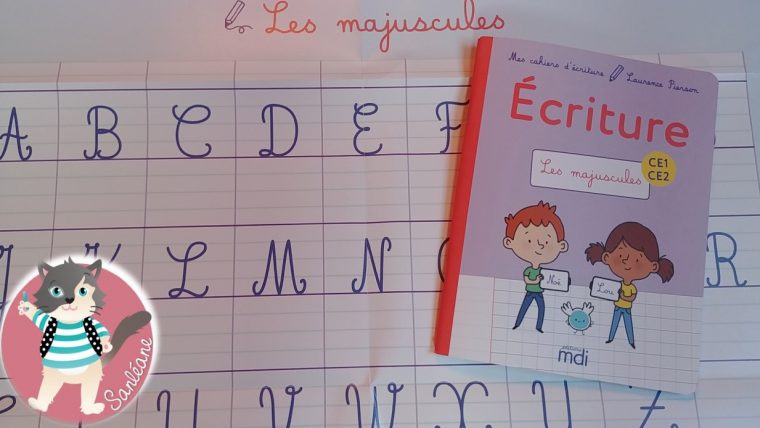 Les majuscules
A B C D E F
Mes cahiers d'écriture Laurence Pierson
Écriture
Les majuscules
CE1
CE2
J K L M N R
Noé Lou
éditions
mdi
U V W X Y Z
Sanléane